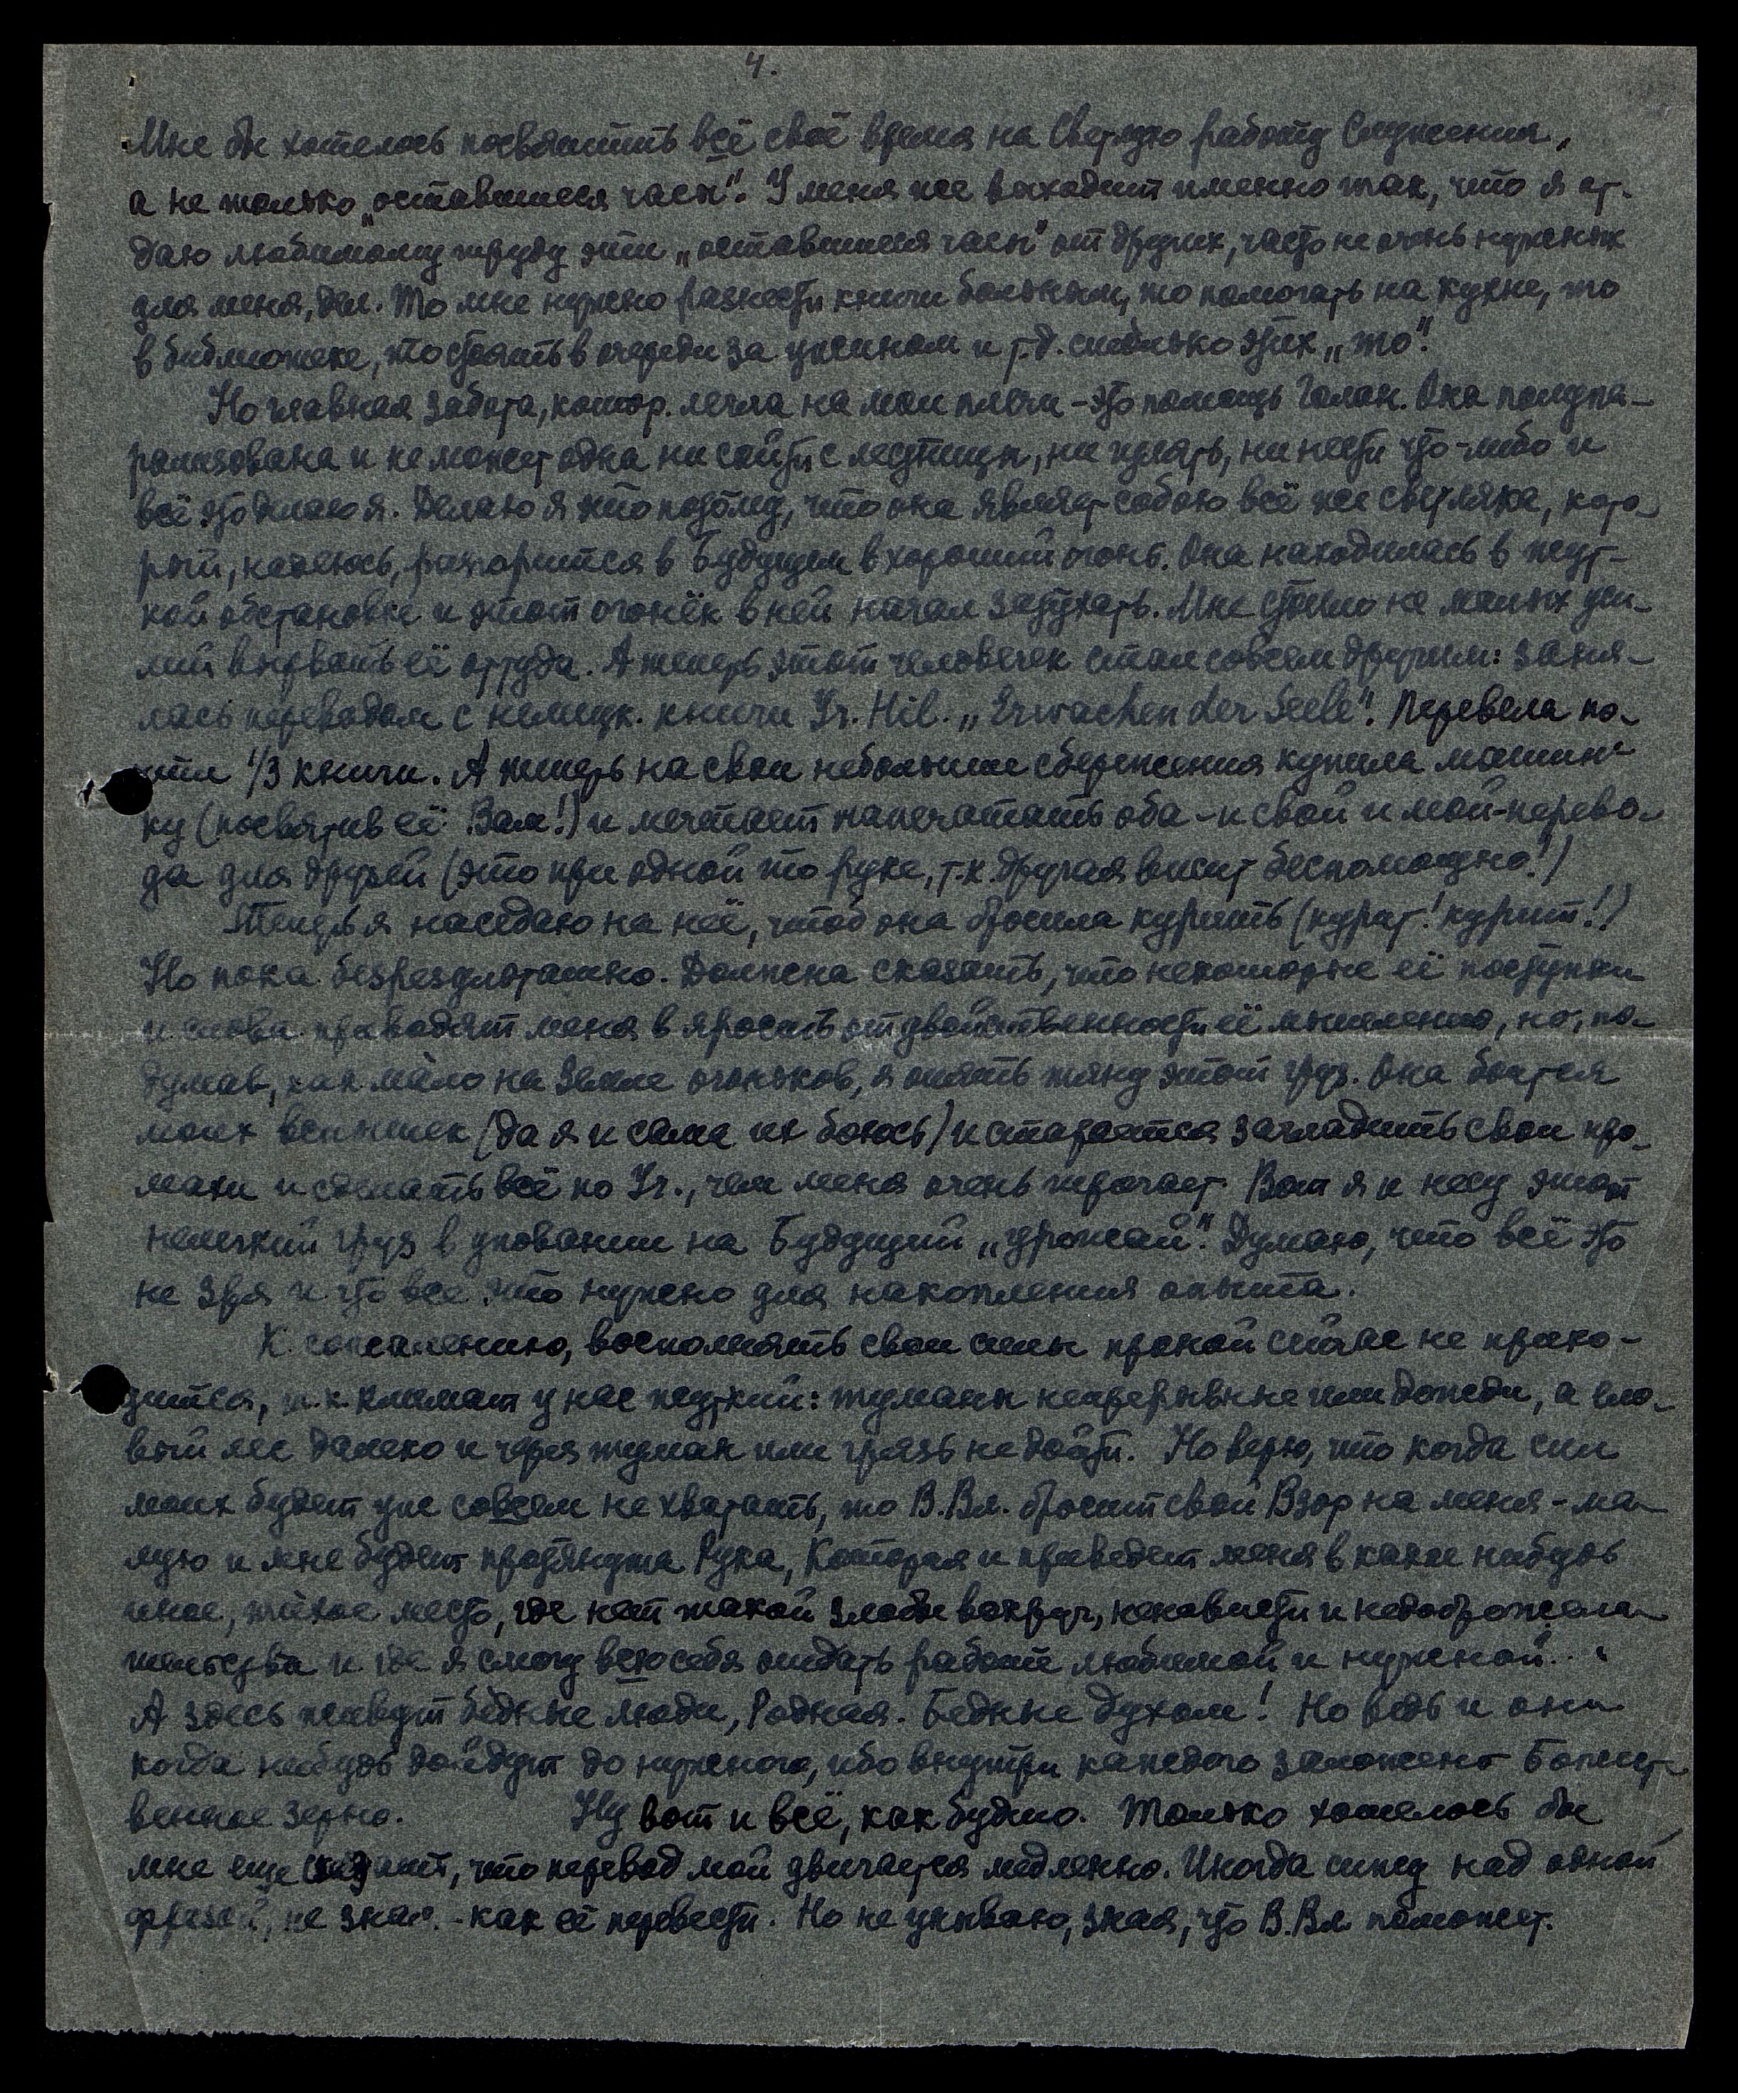 4.
Мне бы хотелось посвятить всё своё время на Светлую работу Служения,
а не только „оставшиеся часы". У меня же выходит именно так, что я от-
даю любимому труду эти „оставшиеся часы" от других, часто не очень нужных
для меня, дел. То мне нужно разнести книги больным, то помогать на кухне, то
в библиотеке, то стоять в очереди за ужином и т.д. столько этих „то".
Но главная забота, котор. легла на мои плечи – это помощь Голон. Она полупа-
рализована и не может одна ни сойти с лестницы, ни гулять, ни нести что-либо и
всё это делаю я. Делаю я это потому, что она являет собою всё же светляка, кото-
рый, надеюсь, разгорится в Будущем в хороший огонь. Она находилась в жут-
кой обстановке и этот огонёк в ней начал затухать. Мне стоило не малых уси-
лий вырвать её оттуда. А теперь этот человечек стал совсем другим: заня-
лась переводом с немецк. книги Уч. Hil. „Erwachen der Seele". Перевела по-
чти 1/3 книги. А теперь на свои небольшие сбережения купила машин-
ку (посвятив её Вам!) и мечтает напечатать оба – и свой и мой – перево-
да для друзей (это при одной то руке, т.к. другая висит беспомощно!)
Теперь я наседаю на неё, чтоб она бросила курить (курит! курит!)
Но пока безрезультатно. Должна сказать, что некоторые её поступки
и слова приводят меня в ярость от двойственности её мышления, но, по-
думав, как мало на Земле огоньков, я опять тяну этот груз. Она боится
моих вспышек (да я и сама их боюсь) и старается загладить свои про-
махи и сделать всё по Уч., чем меня очень трогает. Вот я и несу этот
нелегкий груз в уповании на Будущий „урожай". Думаю, что всё это
не зря и что все это нужно для накопления опыта.
К сожалению, восполнять свои силы праной сейчас не прихо-
дится, т.к. климат у нас жуткий: туманы непрерывные или дожди, а ело-
вый лес далеко и через туман или грязь не дойти. Но верю, что когда сил
моих будет уже совсем не хватать, то В.Вл. бросит свой Взор на меня – ма-
лую и мне будет протянута Рука, Которая и приведет меня в какое нибудь
иное, тихое место, где нет такой злобы вокруг, ненависти и недоброжела-
тельства и где я смогу всю себя отдать работе любимой и нужной...
А здесь живут бедные люди, Родная. Бедные Духом! Но ведь и они
когда нибудь дойдут до нужного, ибо внутри каждого заложено Божест-
венное зерно. Ну вот и всё, как будто. Только хотелось бы
мне еще сказать, что перевод мой двигается медленно. Иногда сижу над одной
фразой, не зная – как её перевести. Но не унываю, зная, что В.Вл. поможет.